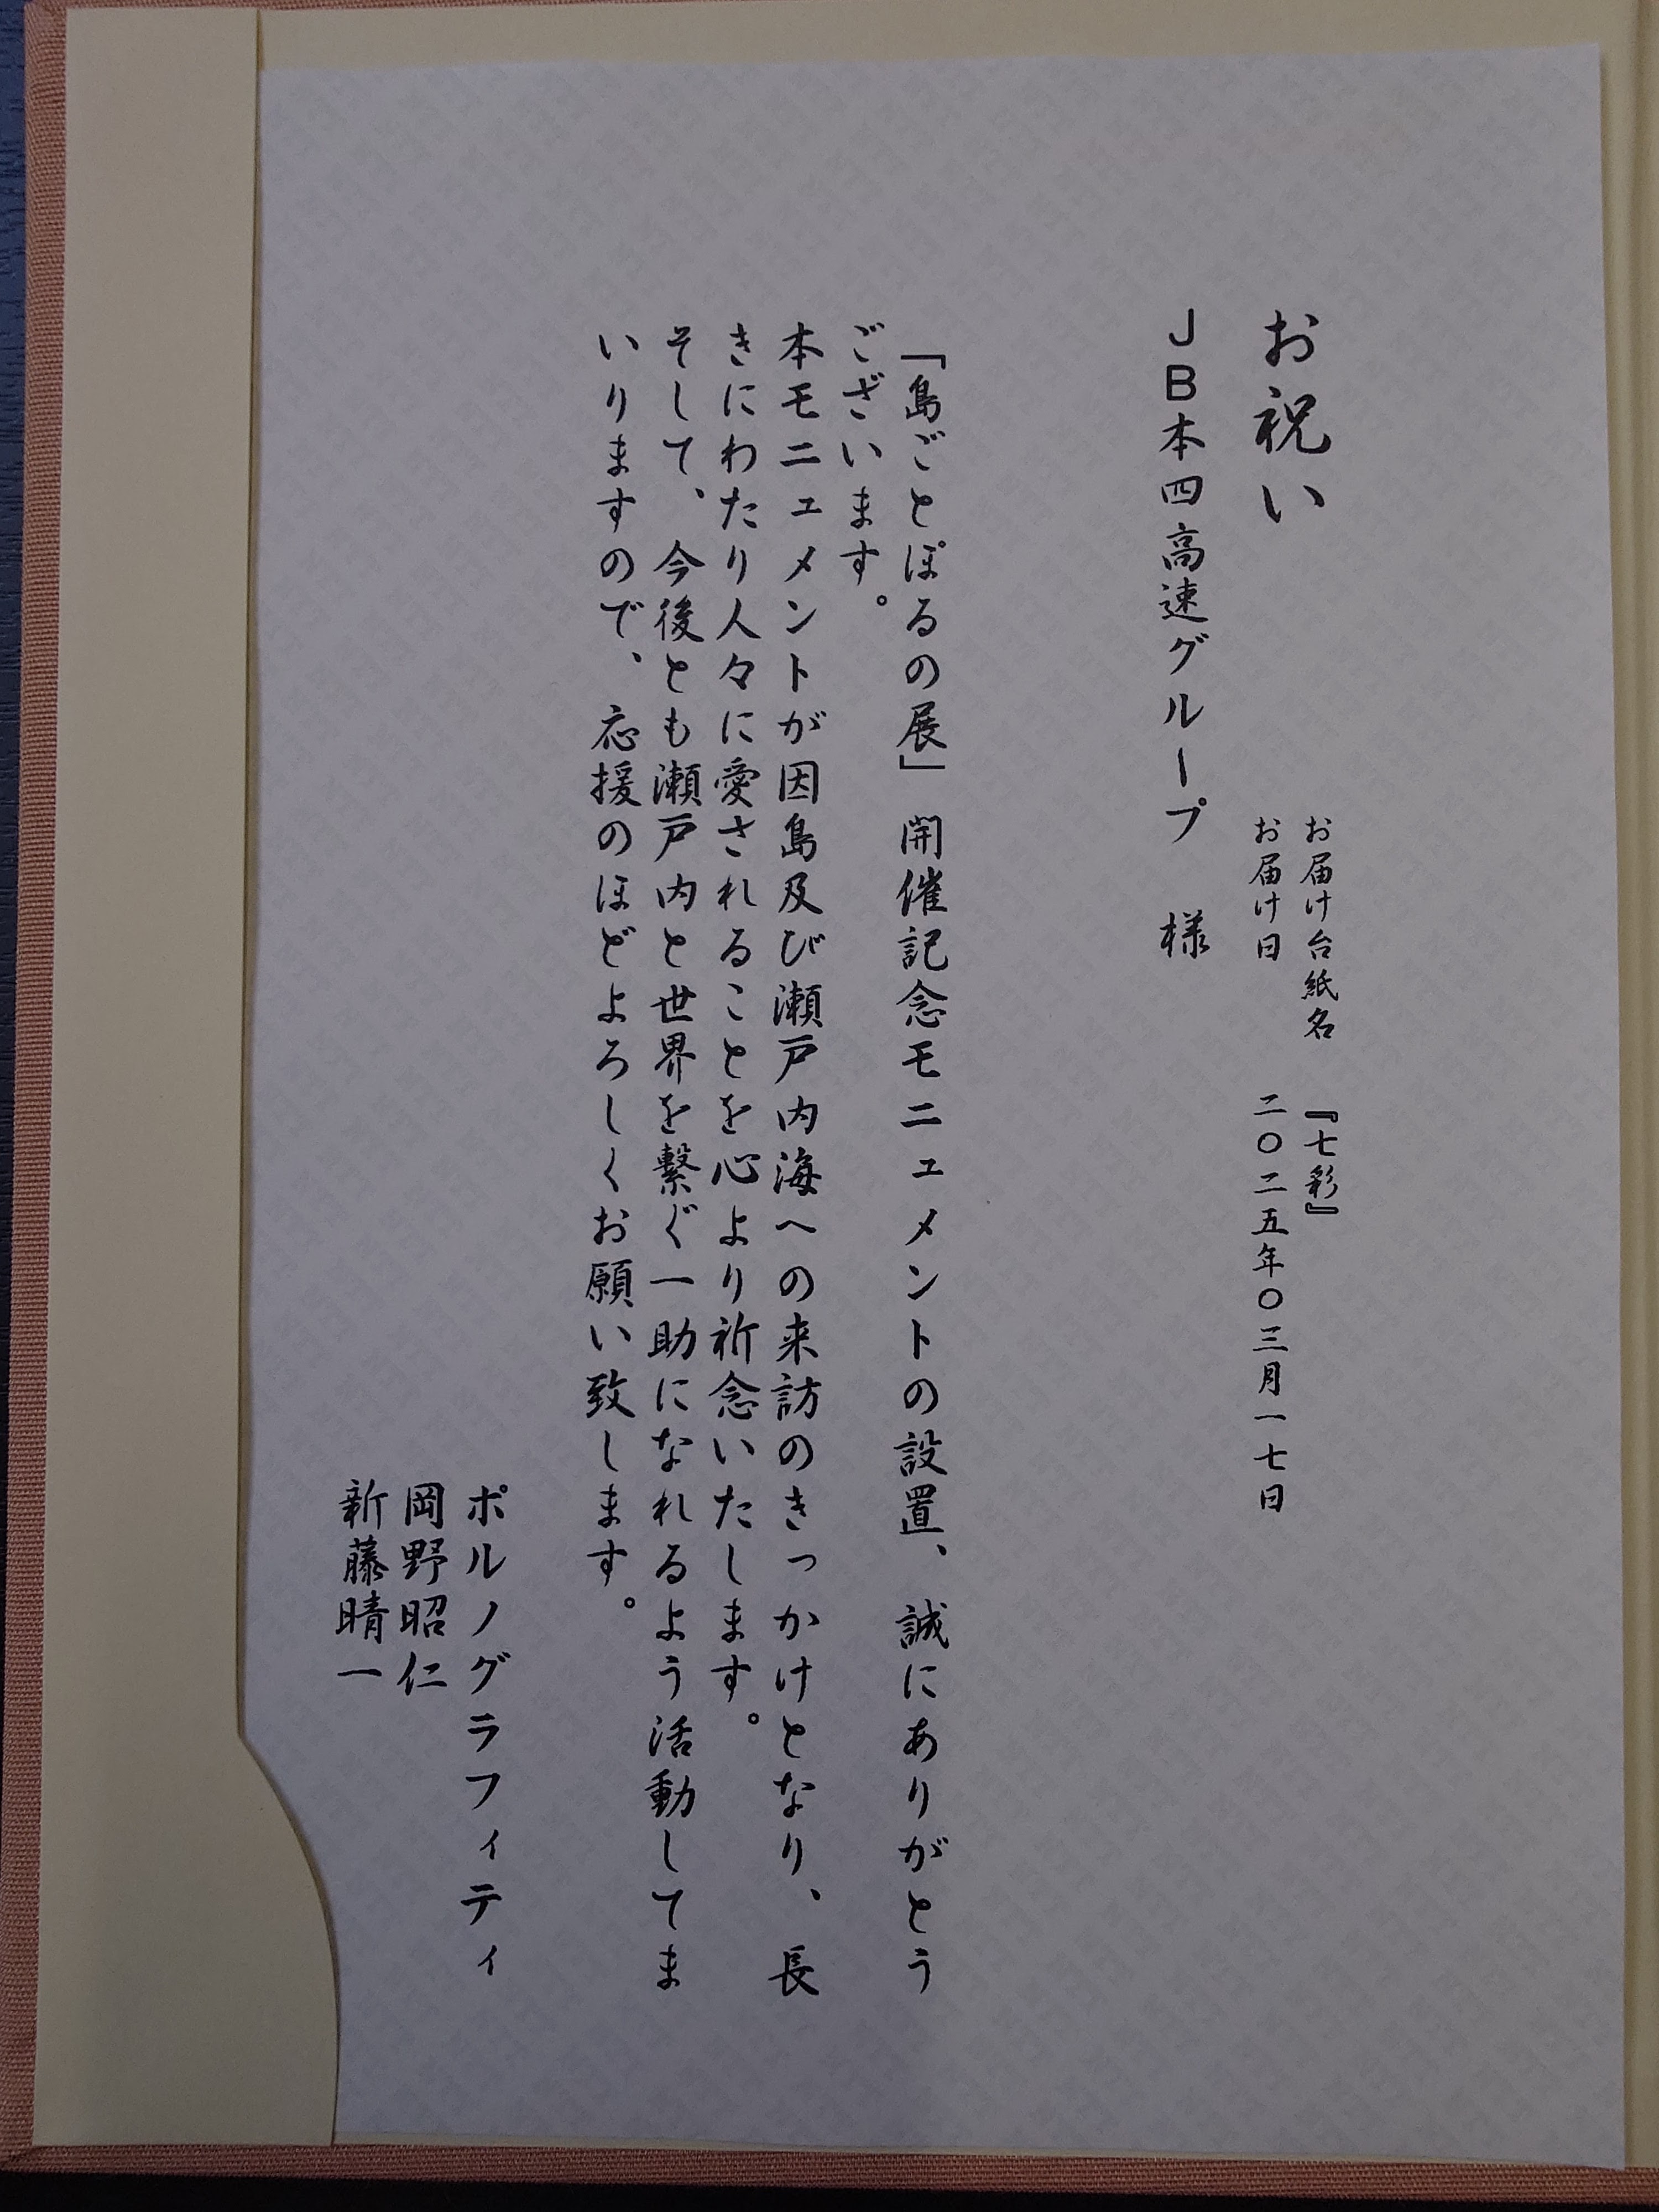 お祝い
お届け台紙名 『七彩』
お届け日 二〇二五年〇三月一七日
JB本四高速グループ 様
「島ごとぽるの展」開催記念モニュメントの設置、誠にありがとう
ございます。
本モニュメントが因島及び瀬戸内海への来訪のきっかけとなり、長
きにわたり人々に愛されることを心より祈念いたします。
そして、今後とも瀬戸内と世界を繋ぐ一助になれるよう活動してま
いりますので、応援のほどよろしくお願い致します。
ポルノグラフィティ
岡野昭仁
新藤晴一